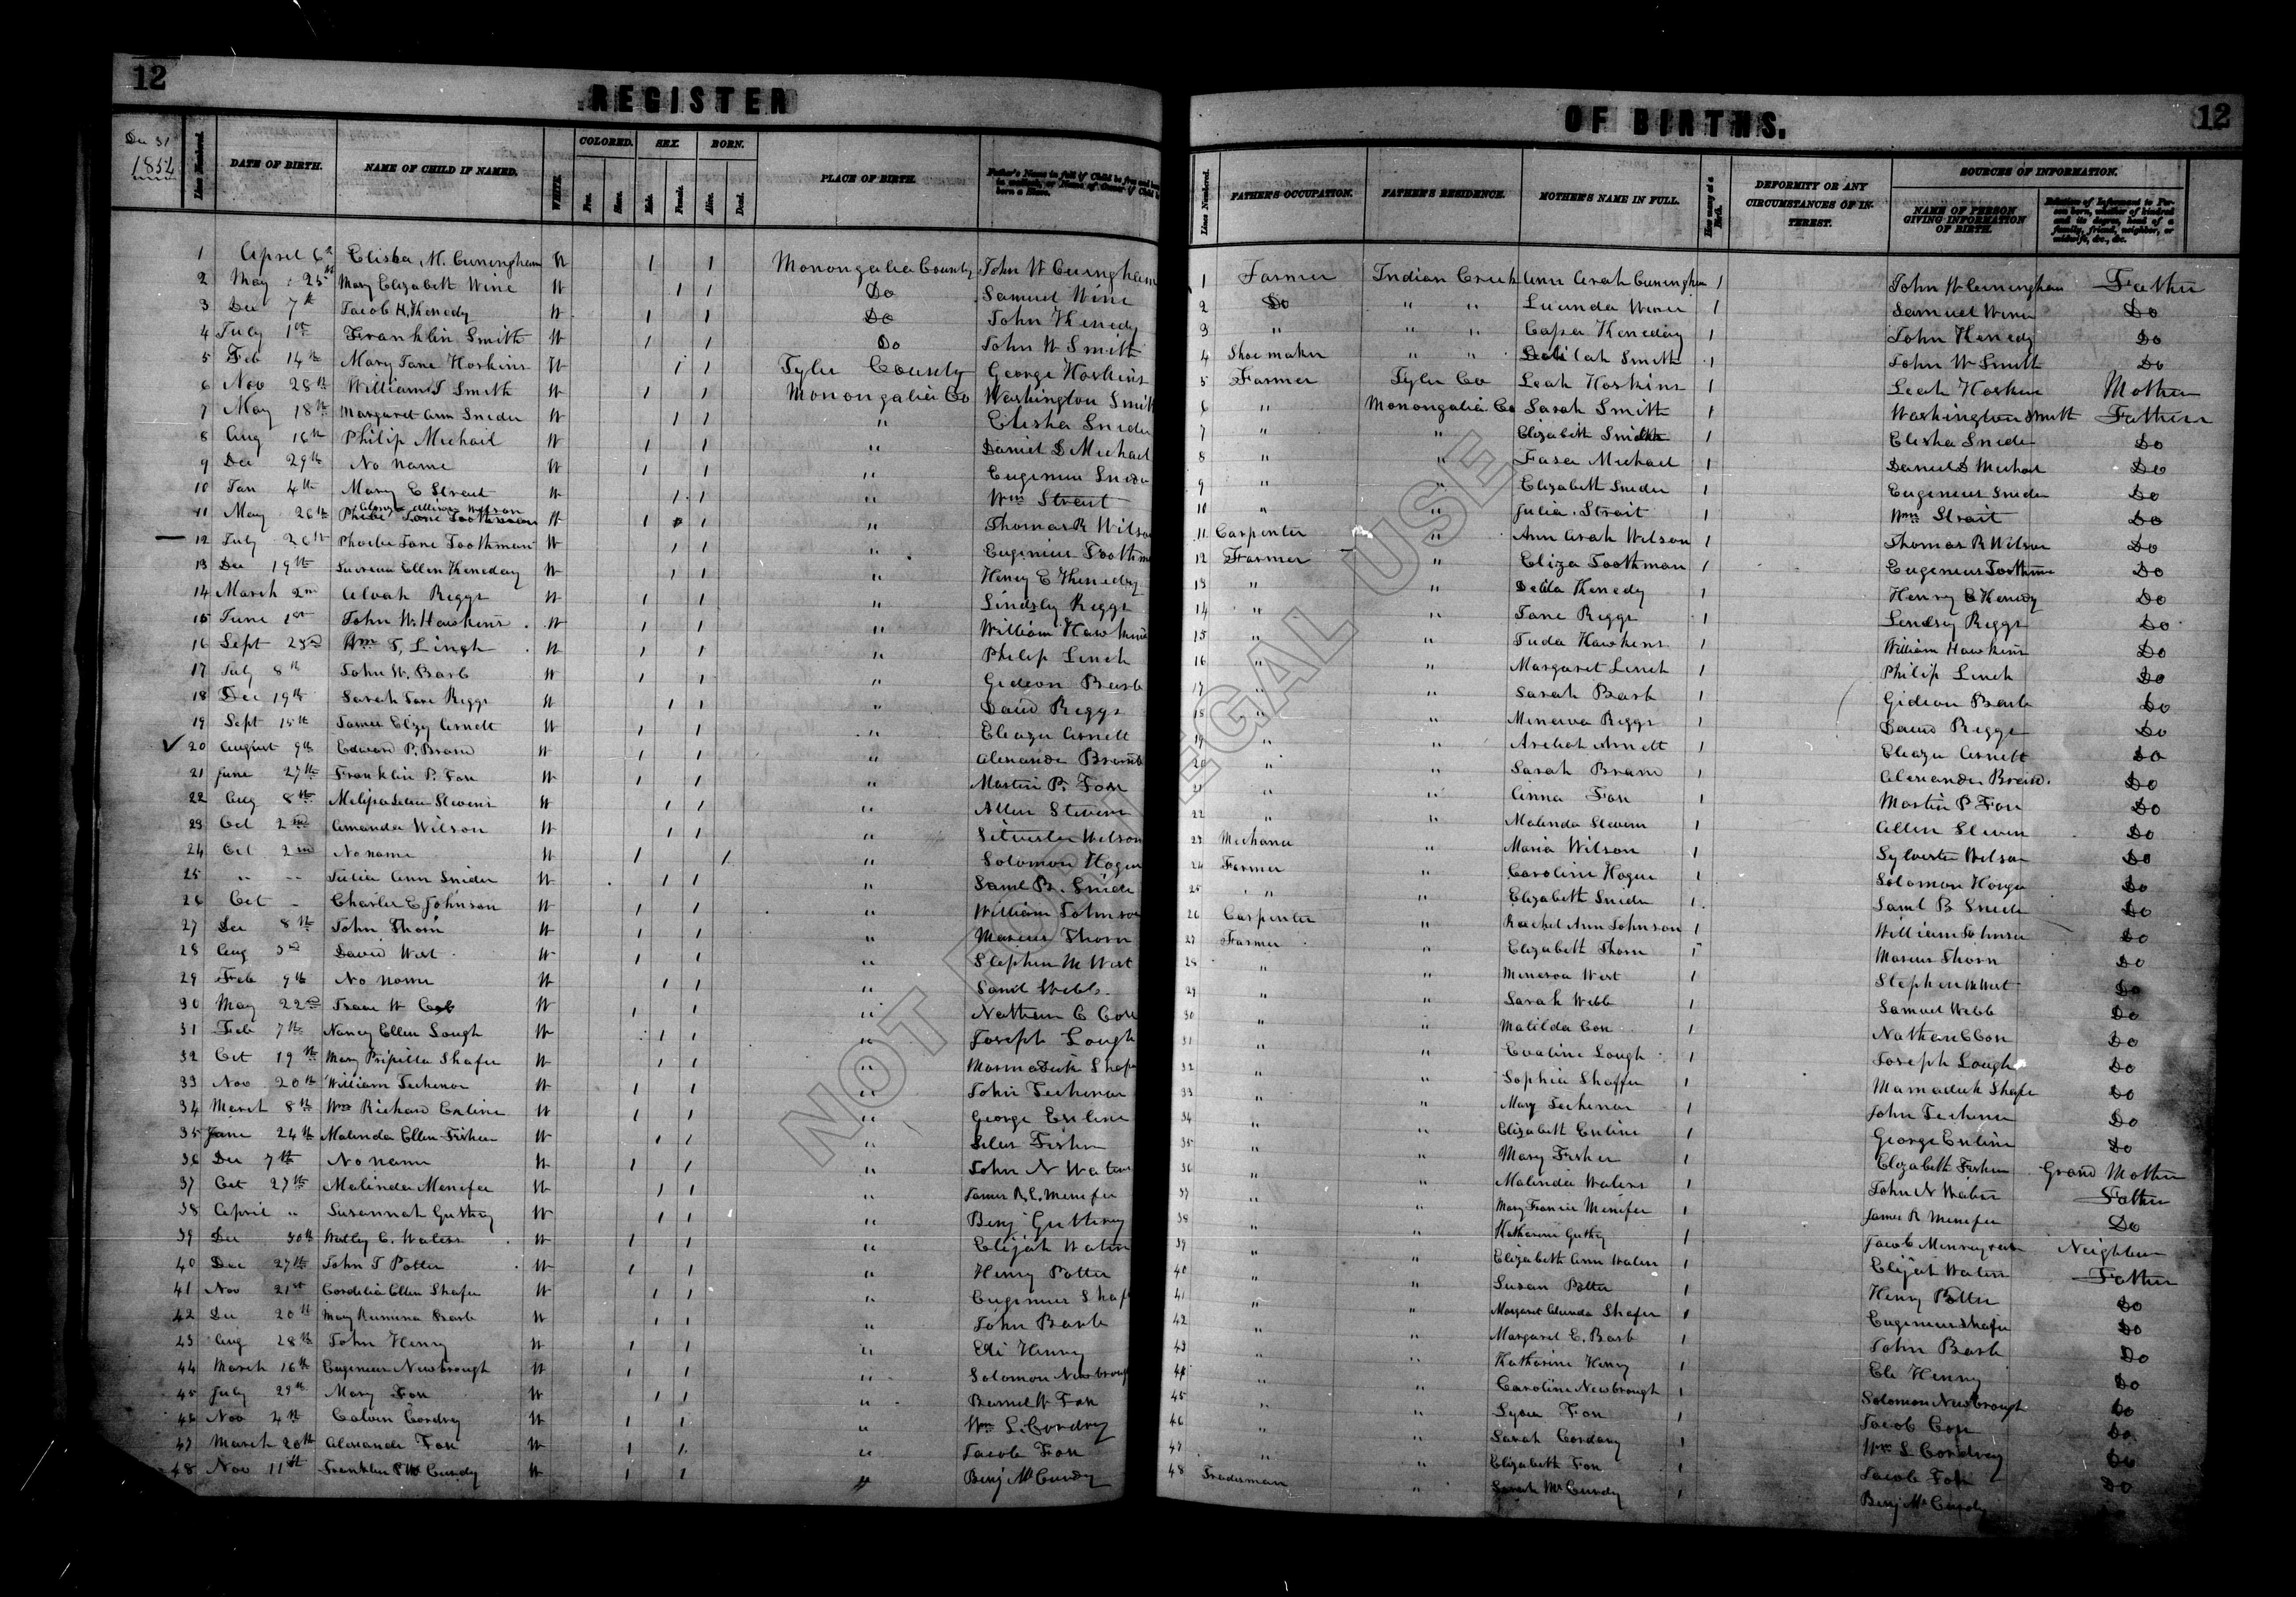 12
REGISTER
Dec 31
1854
Lines Numbered.
DATE OF BIRTH.
NAME OF CHILD IF NAMED.
WHITE.
COLORED.
Free.
Slave.
SEX.
Male.
Female.
BORN.
Alive.
Dead.
PLACE OF BIRTH.
1 April 6th Elisha M. Cuningham W 1 1 Monongalia County John W Cuningham
2 May 25th Mary Elizabeth Wine W 1 1 Do Samuel Wine
3 Dec 7th Jacob H. Kenedy W 1 1 Do John Kenedy
4 July 1st Franklin Smith W 1 1 Do John W Smith
5 Feb 14th Mary Jane Hoskins W 1 1 Tyler County George Hoskins
6 Nov 28th William T Smith W 1 1 Monongalia Co Washington Smith
7 May 18th Margaret Ann Snider W 1 1 " Elisha Snider
8 Aug 16th Philip Michail W 1 1 " Daniel D Michael
9 Dec 29th No name W 1 1 " Eugenius Snider
10 Jan 4th Mary E Streut W 1 1 " Wm Streut
11 May 26th Phebe Jane Toothman Alonza Allison Wilson W 1 1 " Thomas R Wilson
12 July 26th Phoebe Jane Toothman W 1 1 " Eugenius Toothm
13 Dec 19th Ellen Keneday W 1 1 " Henry E Kenedy
14 March 2nd Alvah Riggs W 1 1 " Lindsly Riggs
15 June 1st John W. Hawkins W 1 1 " William Hawkins
16 Sept 23rd Wm T, Lingh W 1 1 " Philip Linch
17 July 8th John W. Barb W 1 1 " Gideon Barb
18 Dec 19th Sarah Jane Riggs W 1 1 " David Riggs
19 Sept 15th James Elzy Arnett W 1 1 " Eleazer Arnett
✓ 20 August 9th Edward P. Brand W 1 1 " Alexander Brand
21 June 27th Franklin P. Fox W 1 1 " Martin P. Fox
22 Aug 8th Stevens W 1 1 " Allen Stevens
23 Oct 2nd Amanda Wilson W 1 1 " Silvester Wilson
24 Oct 2nd No name W 1 1 " Solomon Hogue
25 " " Julia Ann Snider W 1 1 " Saml B. Snider
26 Oct - Charles E Johnson W 1 1 " William Johnson
27 Dec 8th John Thorn W 1 1 " Marcus Thorn
28 Aug 3rd David West W 1 1 " Stephen M West
29 Feb 9th No name W 1 1 " Saml Webb
30 May 22nd Isaac W Cox W 1 1 " Nathan C Cox
31 Feb 7th Nancy Ellen Lough W 1 1 " Joseph Lough
32 Oct 19th Mary Pripilla Shafer W 1 1 " Marmaduk Shafer
33 Nov 20th William Tichenor W 1 1 " John Tichenor
34 March 8th Wm Richard Exline W 1 1 " George Exline
35 June 24th Malinda Ellen Fisher W 1 1 " Silus Fisher
36 Dec 7th No name W 1 1 " John N Waters
37 Oct 27th Malinda Menifee W 1 1 " James R. L. Menifee
38 April " Susannah Guthry W 1 1 " Benj Guthrey
39 Dec 30th C. Waters W 1 1 " Elijah Waters
40 Dec 27th John T Potter W 1 1 " Henry Potter
41 Nov 21st Cordelia Ellen Shafer W 1 1 " Eugenius Shafer
42 Dec 20th Mary Rumina Barb W 1 1 " John Barb
43 Aug 28th John Henry W 1 1 " Eli Henry
44 March 16th Eugenius Newbrough W 1 1 " Solomon Newbrough
45 July 29th Mary Fox W 1 1 " W Fox
46 Nov 4th Calvin Cordrey W 1 1 " Wm L. Cordrey
47 March 20th Alexander Fox W 1 1 " Jacob Fox
48 Nov 11th Franklin P McCurdy W 1 1 " Benj McCurdy
OF BIRTHS.
12
Lines Numbered.
FATHER'S OCCUPATION.
FATHER'S RESIDENCE.
MOTHER'S NAME IN FULL.
How many at a Birth.
DEFORMITY OR ANY CIRCUMSTANCES OF INTEREST.
SOURCES OF INFORMATION.
NAME OF PERSON GIVING INFORMATION OF BIRTH.
Relation of Informant to Person born, whether of kindred and its degree, head of a family, friend, neighbor, or midwife, &c., &c.
1 Farmer Indian Creek Ann Arah Cuningham 1 John W Cuningham Father
2 Do " " Lucinda Winer 1 Samuel Winer Do
3 " " " Capa Keneday 1 John Kenedy Do
4 Shoemaker " " Delilah Smith 1 John W Smith Do
5 Farmer Tyler Co Leah Hoskins 1 Leah Hoskins Mother
6 " Monongalia Co Sarah Smith 1 Washington Smith Father
7 " " Elizabeth Snider 1 Elisha Snider Do
8 " " Fasa Michael 1 Daniel D Michael Do
9 " " Elizabeth Snider 1 Eugenius Snider Do
10 " " Julia Strait 1 Wm Strait Do
11 Carpenter " Ann Arah Wilson 1 Thomas R Wilson Do
12 Farmer " Eliza Toothman 1 Eugenius Toothman Do
13 " " Delila Kenedy 1 Henry E Kenedy Do
14 " " Jane Riggs 1 Lindsey Riggs Do
15 " " Juda Hawkins 1 William Hawkins Do
16 " " Margaret Linch 1 Philip Linch Do
17 " " Sarah Barb 1 Gideon Barb Do
18 " " Minerva Riggs 1 David Riggs Do
19 " " Arnett 1 Eleazer Arnett Do
20 " " Sarah Brand 1 Alexander Brand Do
21 " " Anna Fox 1 Martin P Fox Do
22 " " Malinda Stevens 1 Allen Steven Do
23 Mechanic " Maria Wilson 1 Sylvester Wilson Do
24 Farmer " Caroline Hogue 1 Solomon Hogue Do
25 " " Elizabeth Snider 1 Saml B Snider Do
26 Carpenter " Rachel Ann Johnson 1 William Johnson Do
27 Farmer " Elizabeth Thorn 1 Marcus Thorn Do
28 " " Minerva West 1 Stephen M West Do
29 " " Sarah Webb 1 Samuel Webb Do
30 " " Matilda Cox 1 Nathan C Cox Do
31 " " Evaline Lough 1 Joseph Lough Do
32 " " Sophia Shaffer 1 Mamaduk Shafer Do
33 " " Mary Tichenor 1 John Tichenor Do
34 " " Elizabeth Exline 1 George Exline Do
35 " " Mary Fisher 1 Elizabeth Fisher Grand Mother
36 " " Malinda Waters 1 John N Waters Father
37 " " Mary Francis Menifee 1 James R Menifee Do
38 " " Katharine Guthry 1 Jacob Neighbor
39 " " Elizabeth Ann Waters 1 Elijah Waters Father
40 " " Susan Potter 1 Henry Potter Do
41 " " Margaret Shafer 1 Eugenius Shafer Do
42 " " Margaret E. Barb 1 John Barb Do
43 " " Katharine Henry 1 Eli Henry Do
44 " " Caroline Newbrough 1 Solomon Newbrough Do
45 " " Lydia Fox 1 Jacob Cox Do
46 " " Sarah Cordary 1 Wm L Cordrey Do
47 " " Elizabeth Fox 1 Jacob Fox Do
48 Tradesman " Sarah McCurdy 1 Benj McCurdy
NOT FOR LEGAL USE